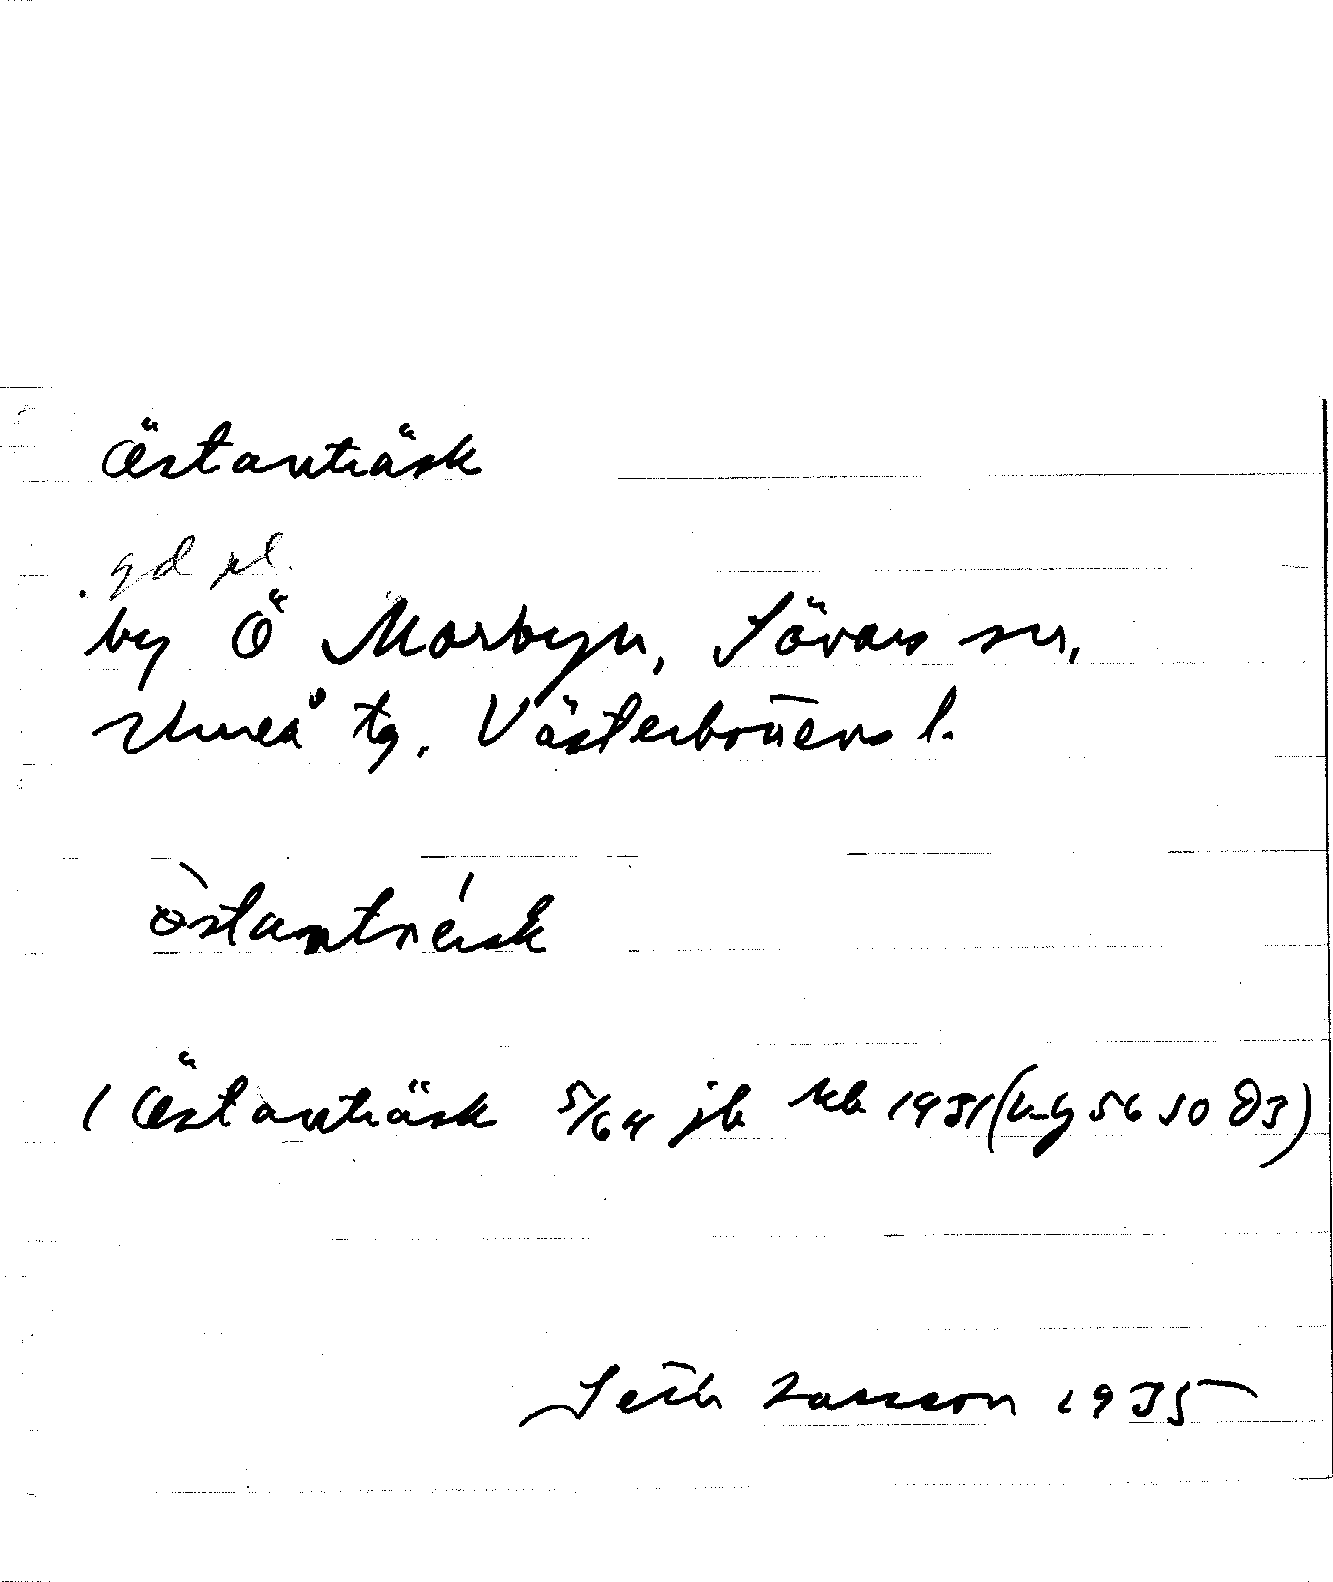 Östanträsk
gd pl.
by Ö Marbyn, Sävars sn,
Umeå tg, Västerbottens l.
òstantréisk
1 Östanträsk 5/64 jb 1931 (
Seth Larsson 1935